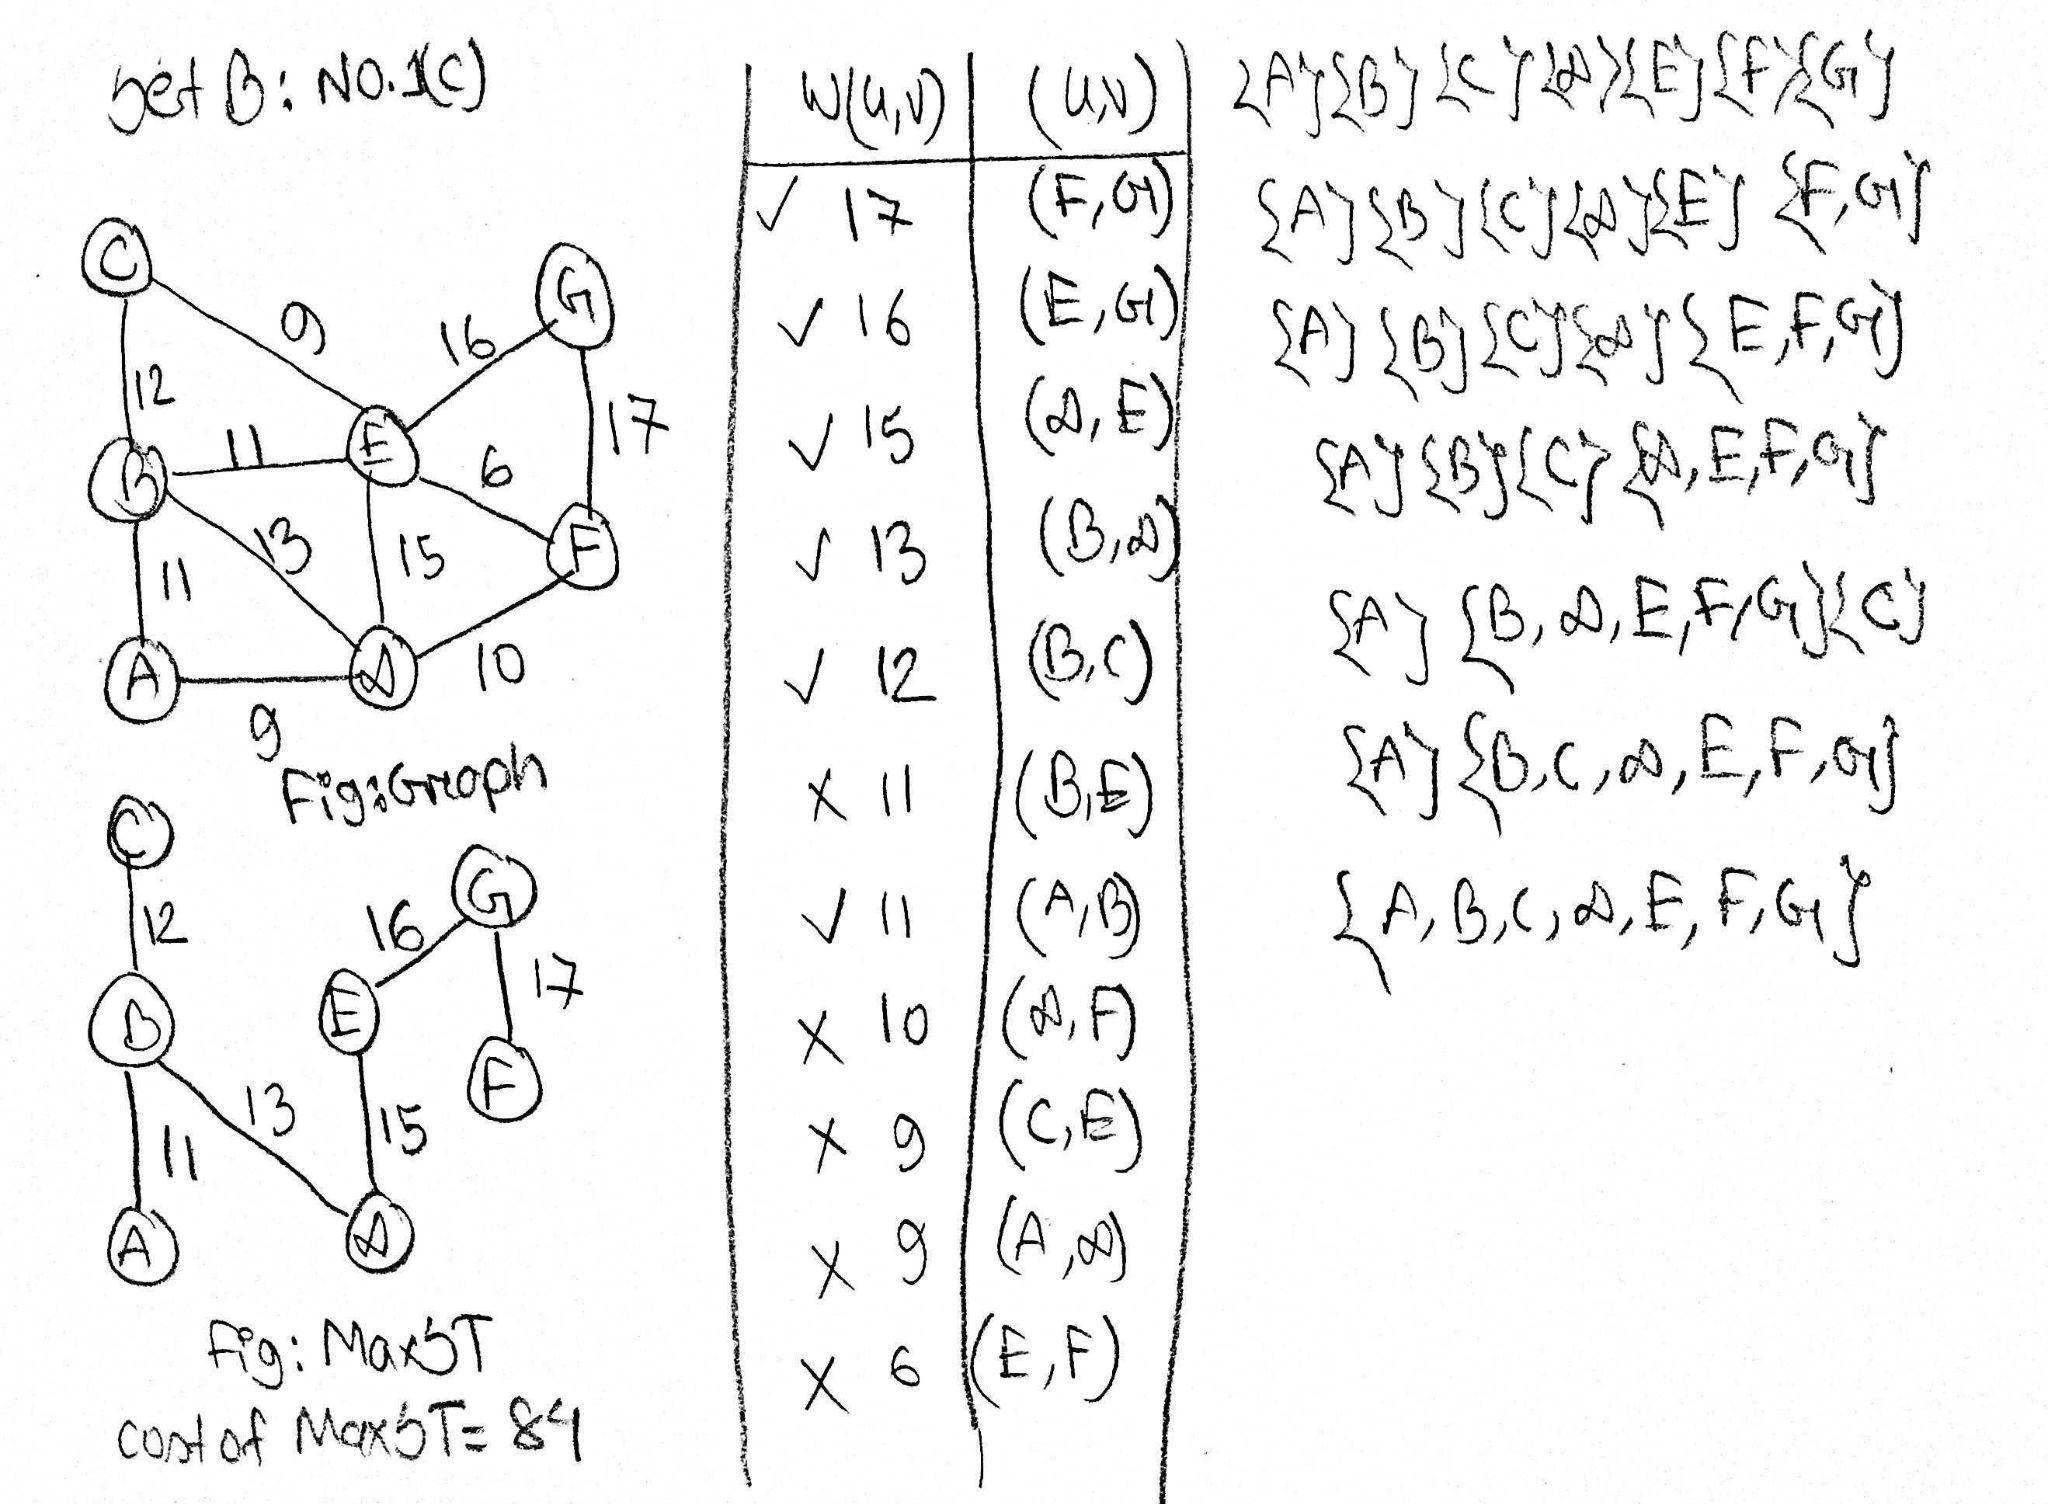 Set B: NO.1(C)
C
9
16
G
12
17
B
11
E
6
13
15
F
11
A
D
10
9
Fig:Graph
C
12
16
G
17
B
E
F
13
15
11
A
D
Fig: MaxST
cost of MaxST= 84
W(u,v) (u,v)
✓ 17 (F,G)
✓ 16 (E,G)
✓ 15 (D,E)
✓ 13 (B,D)
✓ 12 (B,C)
X 11 (B,E)
✓ 11 (A,B)
X 10 (D,F)
X 9 (C,E)
X 9 (A,D)
X 6 (E,F)
{A}{B}{C}{D}{E}{F}{G}
{A}{B}{C}{D}{E} {F,G}
{A} {B} {C}{D} {E,F,G}
{A}{B}{C} {D,E,F,G}
{A} {B,D,E,F,G}{C}
{A} {B,C,D,E,F,G}
{A,B,C,D,E,F,G}